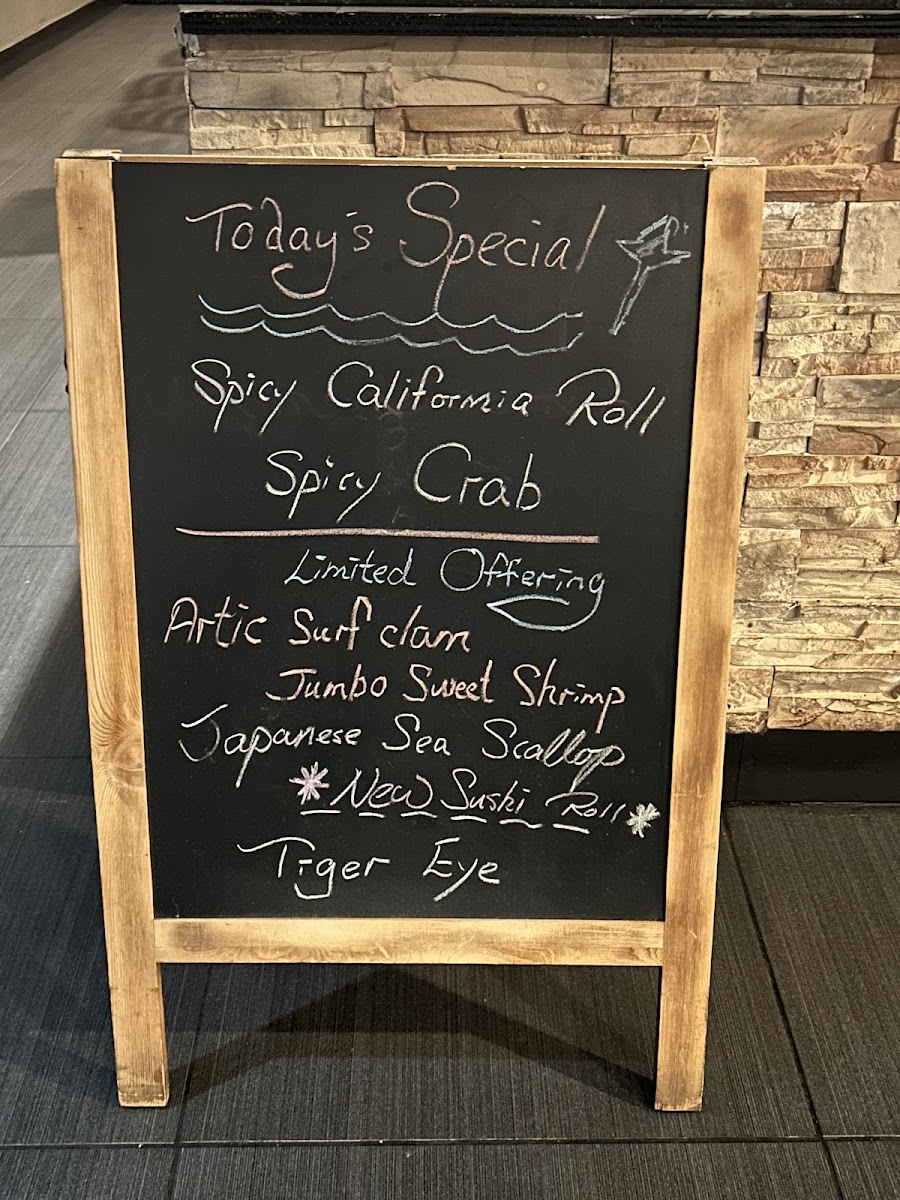 Today's Special
Spicy California Roll
Spicy Crab
Limited Offering
Artic Surf clam
Jumbo Sweet Shrimp
Japanese Sea Scallop
*New Sushi Roll*
Tiger Eye